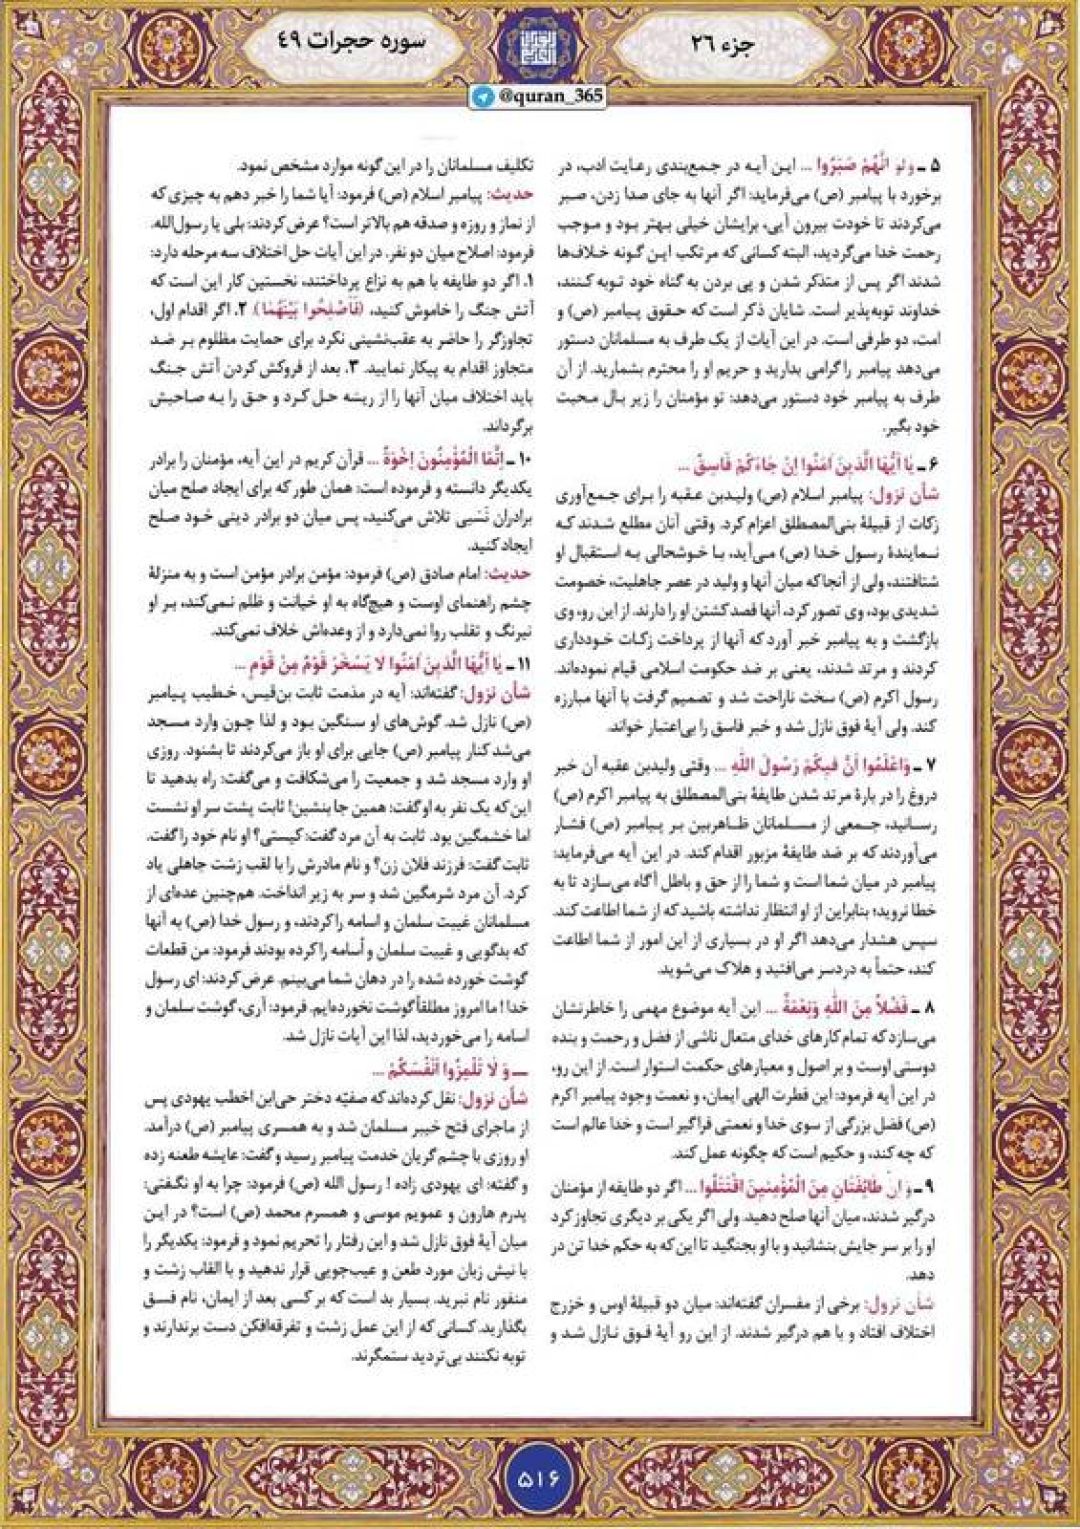 جزء ۲۶
سوره حجرات ۴۹
@quran_365
۵ ـ وَلَوْ اَنَّهُمْ صَبَرُوا ... این آیه در جمع‌بندی رعایت ادب، در
برخورد با پیامبر (ص) می‌فرماید: اگر آنها به جای صدا زدن، صبر
می‌کردند تا خودت بیرون آیی، برایشان خیلی بهتر بود و موجب
رحمت خدا می‌گردید، البته کسانی که مرتکب این گونه خلاف‌ها
شدند اگر پس از متذکر شدن و پی بردن به گناه خود توبه کنند،
خداوند توبه‌پذیر است. شایان ذکر است که حقوق پیامبر (ص) و
امت، دو طرفی است. در این آیات از یک طرف به مسلمانان دستور
می‌دهد پیامبر را گرامی بدارید و حریم او را محترم بشمارید. از آن
طرف به پیامبر خود دستور می‌دهد: تو مؤمنان را زیر بال محبت
خود بگیر.
۶ ـ یَا اَیُّهَا الَّذینَ اٰمَنُوا اِنْ جَاءَکُمْ فَاسِقٌ ...
شأن نزول: پیامبر اسلام (ص) ولیدبن عقبه را برای جمع‌آوری
زکات از قبیلهٔ بنی‌المصطلق اعزام کرد. وقتی آنان مطلع شدند که
نمایندهٔ رسول خدا (ص) می‌آید، با خوشحالی به استقبال او
شتافتند، ولی از آنجا که میان آنها و ولید در عصر جاهلیت، خصومت
شدیدی بود، وی تصور کرد، آنها قصد کشتن او را دارند. از این رو، وی
بازگشت و به پیامبر خبر آورد که آنها از پرداخت زکات خودداری
کردند و مرتد شدند، یعنی بر ضد حکومت اسلامی قیام نموده‌اند.
رسول اکرم (ص) سخت ناراحت شد و تصمیم گرفت با آنها مبارزه
کند. ولی آیهٔ فوق نازل شد و خبر فاسق را بی‌اعتبار خواند.
۷ ـ وَاعْلَمُوا اَنَّ فیکُمْ رَسُولَ اللّٰهِ ... وقتی ولیدبن عقبه آن خبر
دروغ را در بارهٔ مرتد شدن طایفهٔ بنی‌المصطلق به پیامبر اکرم (ص)
رسانید، جمعی از مسلمانان ظاهربین بر پیامبر (ص) فشار
می‌آوردند که بر ضد طایفهٔ مزبور اقدام کند. در این آیه می‌فرماید:
پیامبر در میان شما است و شما را از حق و باطل آگاه می‌سازد تا به
خطا نروید؛ بنابراین از او انتظار نداشته باشید که از شما اطاعت کند.
سپس هشدار می‌دهد اگر او در بسیاری از این امور از شما اطاعت
کند، حتماً به دردسر می‌افتید و هلاک می‌شوید.
۸ ـ فَضْلاً مِنَ اللّٰهِ وَنِعْمَةً ... این آیه موضوع مهمی را خاطرنشان
می‌سازد که تمام کارهای خدای متعال ناشی از فضل و رحمت و بنده
دوستی اوست و بر اصول و معیارهای حکمت استوار است. از این رو،
در این آیه فرمود: این فطرت الهی ایمان، و نعمت وجود پیامبر اکرم
(ص) فضل بزرگی از سوی خدا و نعمتی فراگیر است و خدا عالم است
که چه کند، و حکیم است که چگونه عمل کند.
۹ ـ وَ اِنْ طَائِفَتَانِ مِنَ الْمُؤْمِنینَ اقْتَتَلُوا ... اگر دو طایفه از مؤمنان
درگیر شدند، میان آنها صلح دهید. ولی اگر یکی بر دیگری تجاوز کرد
او را بر سر جایش بنشانید و با او بجنگید تا این که به حکم خدا تن در
دهد.
شأن نزول: برخی از مفسران گفته‌اند: میان دو قبیلهٔ اوس و خزرج
اختلاف افتاد و با هم درگیر شدند. از این رو آیهٔ فوق نازل شد و
تکلیف مسلمانان را در این گونه موارد مشخص نمود.
حدیث: پیامبر اسلام (ص) فرمود: آیا شما را خبر دهم به چیزی که
از نماز و روزه و صدقه هم بالاتر است؟ عرض کردند: بلی یا رسول‌الله.
فرمود: اصلاح میان دو نفر. در این آیات حل اختلاف سه مرحله دارد:
۱. اگر دو طایفه با هم به نزاع پرداختند، نخستین کار این است که
آتش جنگ را خاموش کنید، (فَاَصْلِحُوا بَیْنَهُمَا) ۲. اگر اقدام اول،
تجاوزگر را حاضر به عقب‌نشینی نکرد برای حمایت مظلوم بر ضد
متجاوز اقدام به پیکار نمایید. ۳. بعد از فروکش کردن آتش جنگ
باید اختلاف میان آنها را از ریشه حل کرد و حق را به صاحبش
برگرداند.
۱۰ ـ اِنَّمَا الْمُؤْمِنُونَ اِخْوَةٌ ... قرآن کریم در این آیه، مؤمنان را برادر
یکدیگر دانسته و فرموده است: همان طور که برای ایجاد صلح میان
برادران نَسَبی تلاش می‌کنید، پس میان دو برادر دینی خود صلح
ایجاد کنید.
حدیث: امام صادق (ص) فرمود: مؤمن برادر مؤمن است و به منزلهٔ
چشم راهنمای اوست و هیچ‌گاه به او خیانت و ظلم نمی‌کند، بر او
نیرنگ و تقلب روا نمی‌دارد و از وعده‌اش خلاف نمی‌کند.
۱۱ ـ یَا اَیُّهَا الَّذینَ اٰمَنُوا لَا یَسْخَرْ قَوْمٌ مِنْ قَوْمٍ ...
شأن نزول: گفته‌اند: آیه در مذمت ثابت بن‌قیس، خطیب پیامبر
(ص) نازل شد. گوش‌های او سنگین بود و لذا چون وارد مسجد
می‌شد کنار پیامبر (ص) جایی برای او باز می‌کردند تا بشنود. روزی
او وارد مسجد شد و جمعیت را می‌شکافت و می‌گفت: راه بدهید تا
این که یک نفر به او گفت: همین جا بنشین! ثابت پشت سر او نشست
اما خشمگین بود. ثابت به آن مرد گفت: کیستی؟ او نام خود را گفت.
ثابت گفت: فرزند فلان زن؟ و نام مادرش را با لقب زشت جاهلی یاد
کرد. آن مرد شرمگین شد و سر به زیر انداخت. هم‌چنین عده‌ای از
مسلمانان غیبت سلمان و اسامه را کردند، و رسول خدا (ص) به آنها
که بدگویی و غیبت سلمان و اُسامه را کرده بودند فرمود: من قطعات
گوشت خورده شده را در دهان شما می‌بینم. عرض کردند: ای رسول
خدا! ما امروز مطلقاً گوشت نخورده‌ایم. فرمود: آری، گوشت سلمان و
اسامه را می‌خوردید، لذا این آیات نازل شد.
ـــ وَ لَا تَلْمِزُوا اَنْفُسَکُمْ ...
شأن نزول: نقل کرده‌اند که صفیّه دختر حی‌ابن اخطب یهودی پس
از ماجرای فتح خیبر مسلمان شد و به همسری پیامبر (ص) درآمد.
او روزی با چشم گریان خدمت پیامبر رسید و گفت: عایشه طعنه زده
و گفته: ای یهودی زاده! رسول الله (ص) فرمود: چرا به او نگفتی:
پدرم هارون و عمویم موسی و همسرم محمد (ص) است؟ در این
میان آیهٔ فوق نازل شد و این رفتار را تحریم نمود و فرمود: یکدیگر را
با نیش زبان مورد طعن و عیب‌جویی قرار ندهید و با القاب زشت و
منفور نام نبرید. بسیار بد است که بر کسی بعد از ایمان، نام فسق
بگذارید. کسانی که از این عمل زشت و تفرقه‌افکن دست برندارند و
توبه نکنند بی‌تردید ستمگرند.
۵۱۶